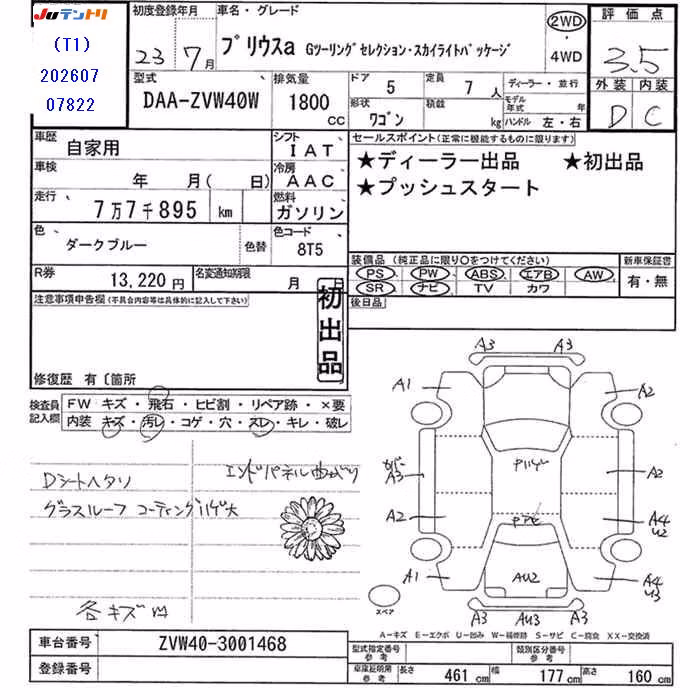 JUテントリ
(T1)
202607
07822
初度登録年月
23年 7月
車名・グレード
プリウスα Gツーリングセレクション・スカイライトパッケージ
2WD
・
4WD
評価点
3.5
外装 内装
D C
型式
DAA-ZVW40W
排気量
1800
CC
ドア 5
定員 7人
ディーラー・並行
形状 ワゴン
積載 kg
モデル年式 年
ハンドル 左・右
車歴 自家用
シフト IAT
車検 年 月( 日)
冷房 AAC
走行 7万7千895 km
燃料 ガソリン
色 ダークブルー
色替
色コード 8T5
R券 13,220円
名変通知期限 月 日
セールスポイント(正常に機能するものに限ります)
★ディーラー出品 ★初出品
★プッシュスタート
装備品(純正品に限り○をつけてください)
PS・PW・ABS・エアB・AW
SR・ナビ・TV カワ
新車保証書
有・無
後日品
注意事項申告欄(不具合内容等は具体的に記入して下さい)
初出品
修復歴 有〔箇所
検査員記入欄
FW キズ・飛石・ヒビ割・リペア跡・×要
内装 キズ・汚レ・コゲ・穴・スレ・キレ・破レ
エンドパネル曲がり
Dシートヘタリ
グラスルーフ コーティングハゲ大
各キズ凹
A3 A3
A1 A2
A3 A2
A2 A4 U2
A1 AU2 A4 U3
A3 AU3 A3
スペア
A-キズ E-エクボ U-凹み W-補修跡 S-サビ C-腐食 XX-交換済
車台番号 ZVW40-3001468
登録番号
型式指定番号 参考
類別区分番号 参考
車庫証明用 参考
長さ 461 cm 幅 177 cm 高さ 160 cm